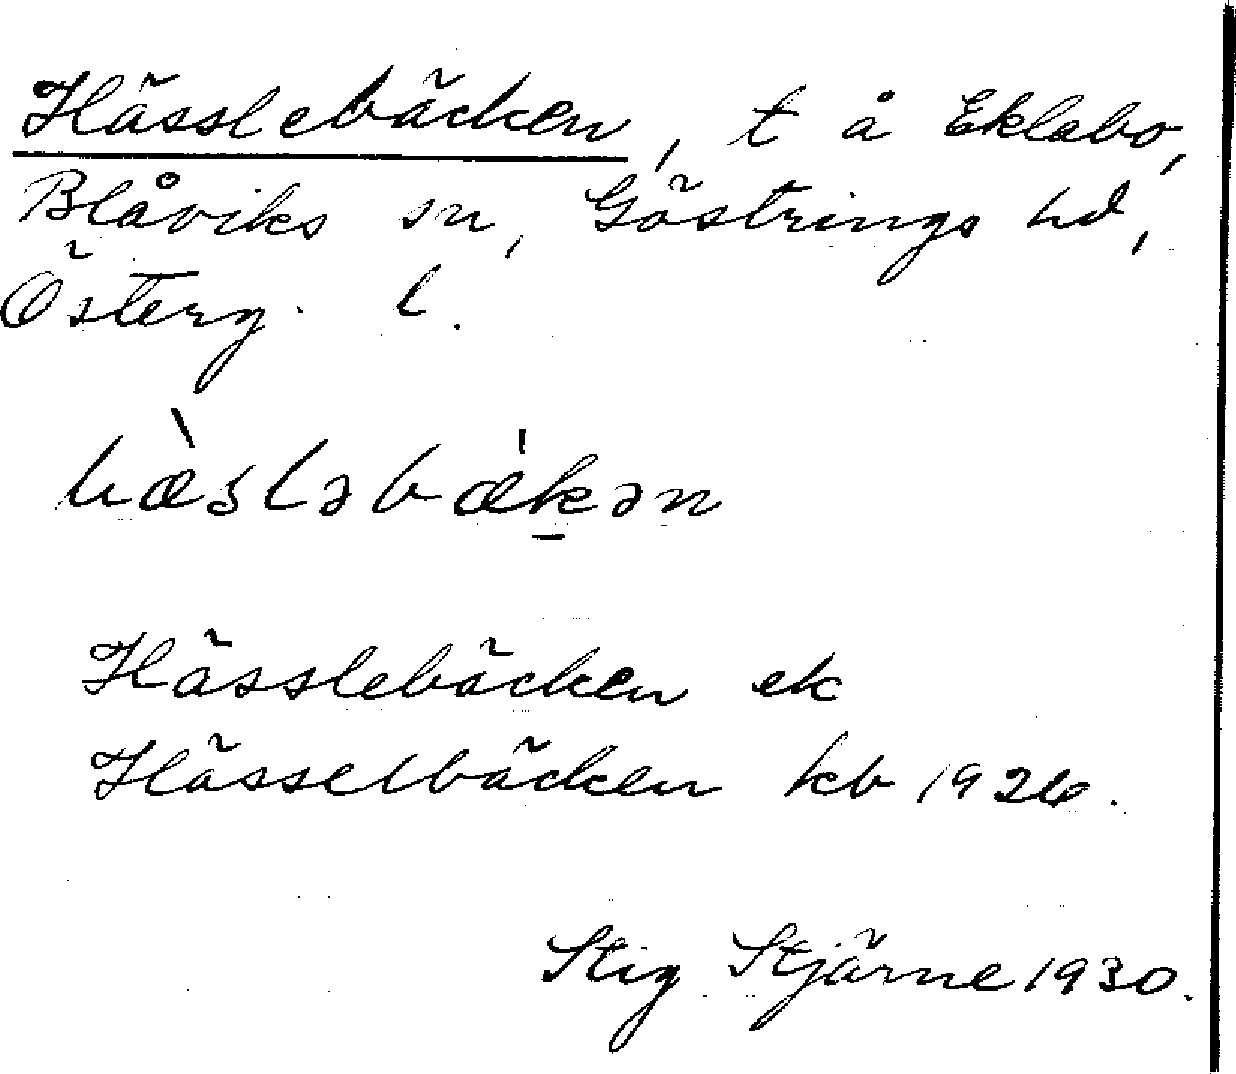 Hässlebäcken, t å Eklabo,
Blåviks sn, Göstrings hd,
Österg. l.
hæ̀sləbæ̍k̠ən
Hässlebäcken ek
Hässelbäcken kb 1926.
Stig Stjärne 1930.